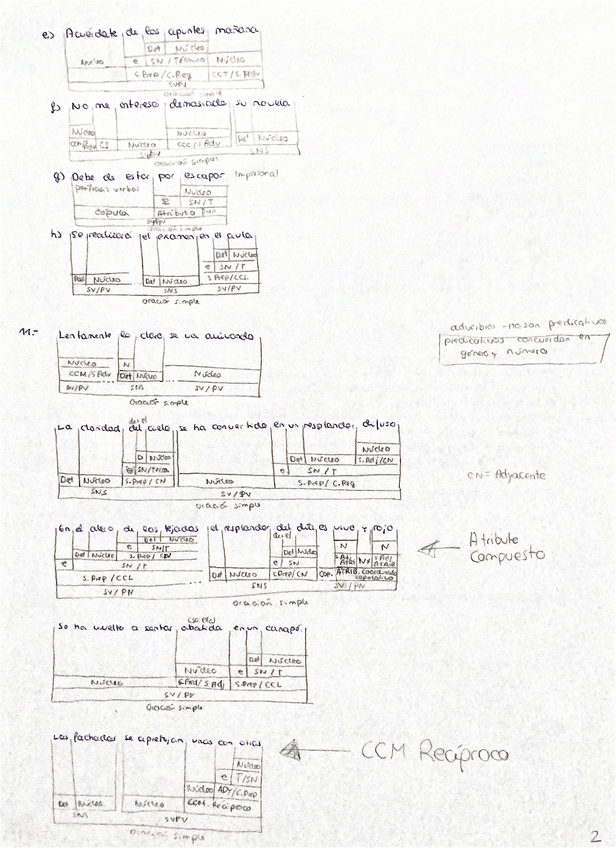 e) Acuérdate de los apuntes mañana
Det Núcleo
Núcleo e SN / Término Núcleo
S.Prep/C.Reg CCT/S.Adv
SV/PV
Oración simple
f) No me interesa demasiado su novela
Núcleo Núcleo
CI Núcleo CCC/S.Adv Det Núcleo
SV/PV SNS
Oración simple
g) Debe de estar por escapar Impersonal
perífrasis verbal Núcleo
e SN/T
Cópula Atributo
SV/PN
Oración simple
h) Se realizará el examen en el aula
Det Núcleo
e SN/T
Núcleo Det Núcleo S.Prep/CCL
SV/PV SNS SV/PV
Oración simple
adverbios - no son predicativos
predicativos concuerdan en
género y número
11.-
Lentamente lo claro se va avivando
Núcleo N
CCM/S.Adv Det Núcleo Núcleo
SV/PV SNS SV/PV
Oración simple
de el
La claridad del cielo se ha convertido en un resplandor difuso
D Núcleo Núcleo
e SN/Térm Det Núcleo S.Adj/CN
e SN / T
Det Núcleo S.Prep/CN Núcleo S.Prep/ C.Reg
SNS SV/PV
Oración simple
CN = Adyacente
En el alero de los tejados el resplandor del día es vivo y rojo
Det Núcleo de el N N
e SN/T Det Núcleo
Det Núcleo S.Prep/CN e SN Nx
e SN / T Det Núcleo S.Prep/CN Cop. ATRIB. coordinado copulativo
S.Prep / CCL SNS SV/PN
SV/PN
Oración simple
Atributo
Compuesto
(se)
Se ha vuelto a sentar abatida en un canapé
Det Núcleo
Núcleo e SN / T
Núcleo S.Adj S.Prep/CCL
SV/PV
Oración simple
Las fachadas se apretujan unas con otras
CCM Recíproco
Núcleo
e T/SN
Núcleo ADY/C.Prep
Det Núcleo Núcleo CCM. Recíproco
SNS SVPV
Oración simple
2